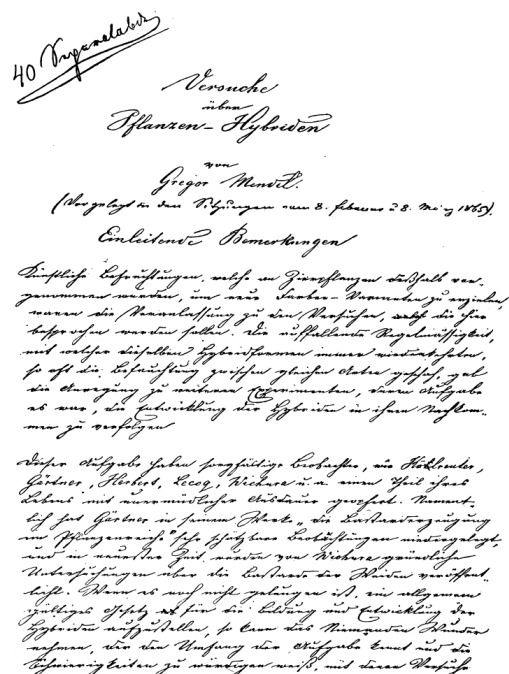 40 Separatabdr.
Versuche
über
Pflanzen-Hybriden
von
Gregor Mendel.
(Vorgelegt in den Sitzungen vom 8. Februar u 8. März 1865).
Einleitende Bemerkungen
Künstliche Befruchtungen, welche an Zierpflanzen deßhalb vor-
genommen wurden, um neue Farben-Varianten zu erzielen,
waren die Veranlassung zu den Versuchen, welche hier
besprochen werden sollen. Die auffallende Regelmässigkeit,
mit welcher dieselben Hybridformen immer wiederkehrten,
so oft die Befruchtung zwischen gleichen Arten geschah, gab
die Anregung zu weiteren Experimenten, deren Aufgabe
es war, die Entwicklung der Hybriden in ihren Nachkom-
men zu verfolgen
Dieser Aufgabe haben sorgfältige Beobachter, wie Kölreuter,
Gärtner, Herbert, Lecoq, Wichura u. a. einen Theil ihres
Lebens mit unermüdlicher Ausdauer geopfert. Nament-
lich hat Gärtner in seinem Werke „die Bastarderzeugung
im Pflanzenreiche" sehr schätzbare Beobachtungen niedergelegt,
und in neuester Zeit wurden von Wichura gründliche
Untersuchungen über die Bastarde der Weiden veröffent-
licht. Wenn es noch nicht gelungen ist, ein allgemein
gültiges Gesetz für die Bildung und Entwicklung der
Hybriden aufzustellen, so kann das Niemanden Wunder
nehmen, der den Umfang der Aufgabe kennt und die
Schwierigkeiten zu würdigen weiß, mit denen Versuche